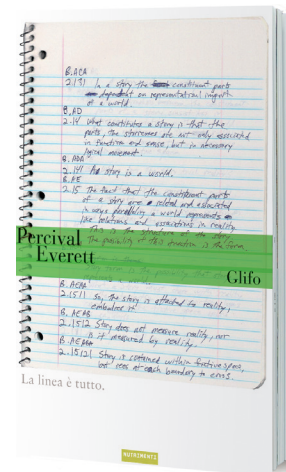 B.ACA
2.131 In a story the constituent parts
dependent on representational import
of a world.
B.AD
2.14 What constitutes a story is that the
parts, the storremes are not only associated
in function and sense, but in necessary
logical movement.
B.ADA
2.141 A story is a world.
B.AE
2.15 The fact that the constituent parts
of a story are related and associated
in ways a world represents
like relations and associations in reality.
This is the structure of the
the possibility of this structure is the form
Percival
Everett
Glifo
B.AEAA
2.1511 So, the story is attached to reality;
embraces it
B.AEAB
2.1512 Story does not measure reality, nor
is it measured by reality.
B.AEABA
2.15121 Story is contained within fictive space,
but sees at each boundary to
La linea è tutto.
NUTRIMENTI